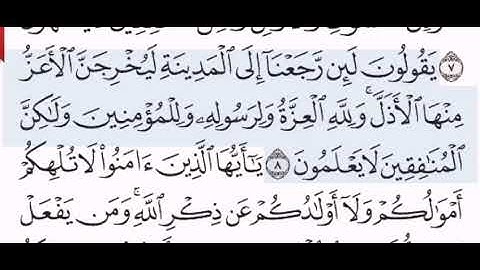 ٧ يَقُولُونَ لَئِن رَّجَعْنَآ إِلَى ٱلْمَدِينَةِ لَيُخْرِجَنَّ ٱلْأَعَزُّ
مِنْهَا ٱلْأَذَلَّ ۚ وَلِلَّهِ ٱلْعِزَّةُ وَلِرَسُولِهِۦ وَلِلْمُؤْمِنِينَ وَلَٰكِنَّ
ٱلْمُنَٰفِقِينَ لَا يَعْلَمُونَ ٨ يَٰٓأَيُّهَا ٱلَّذِينَ ءَامَنُوا۟ لَا تُلْهِكُمْ
أَمْوَٰلُكُمْ وَلَآ أَوْلَٰدُكُمْ عَن ذِكْرِ ٱللَّهِ ۚ وَمَن يَفْعَلْ